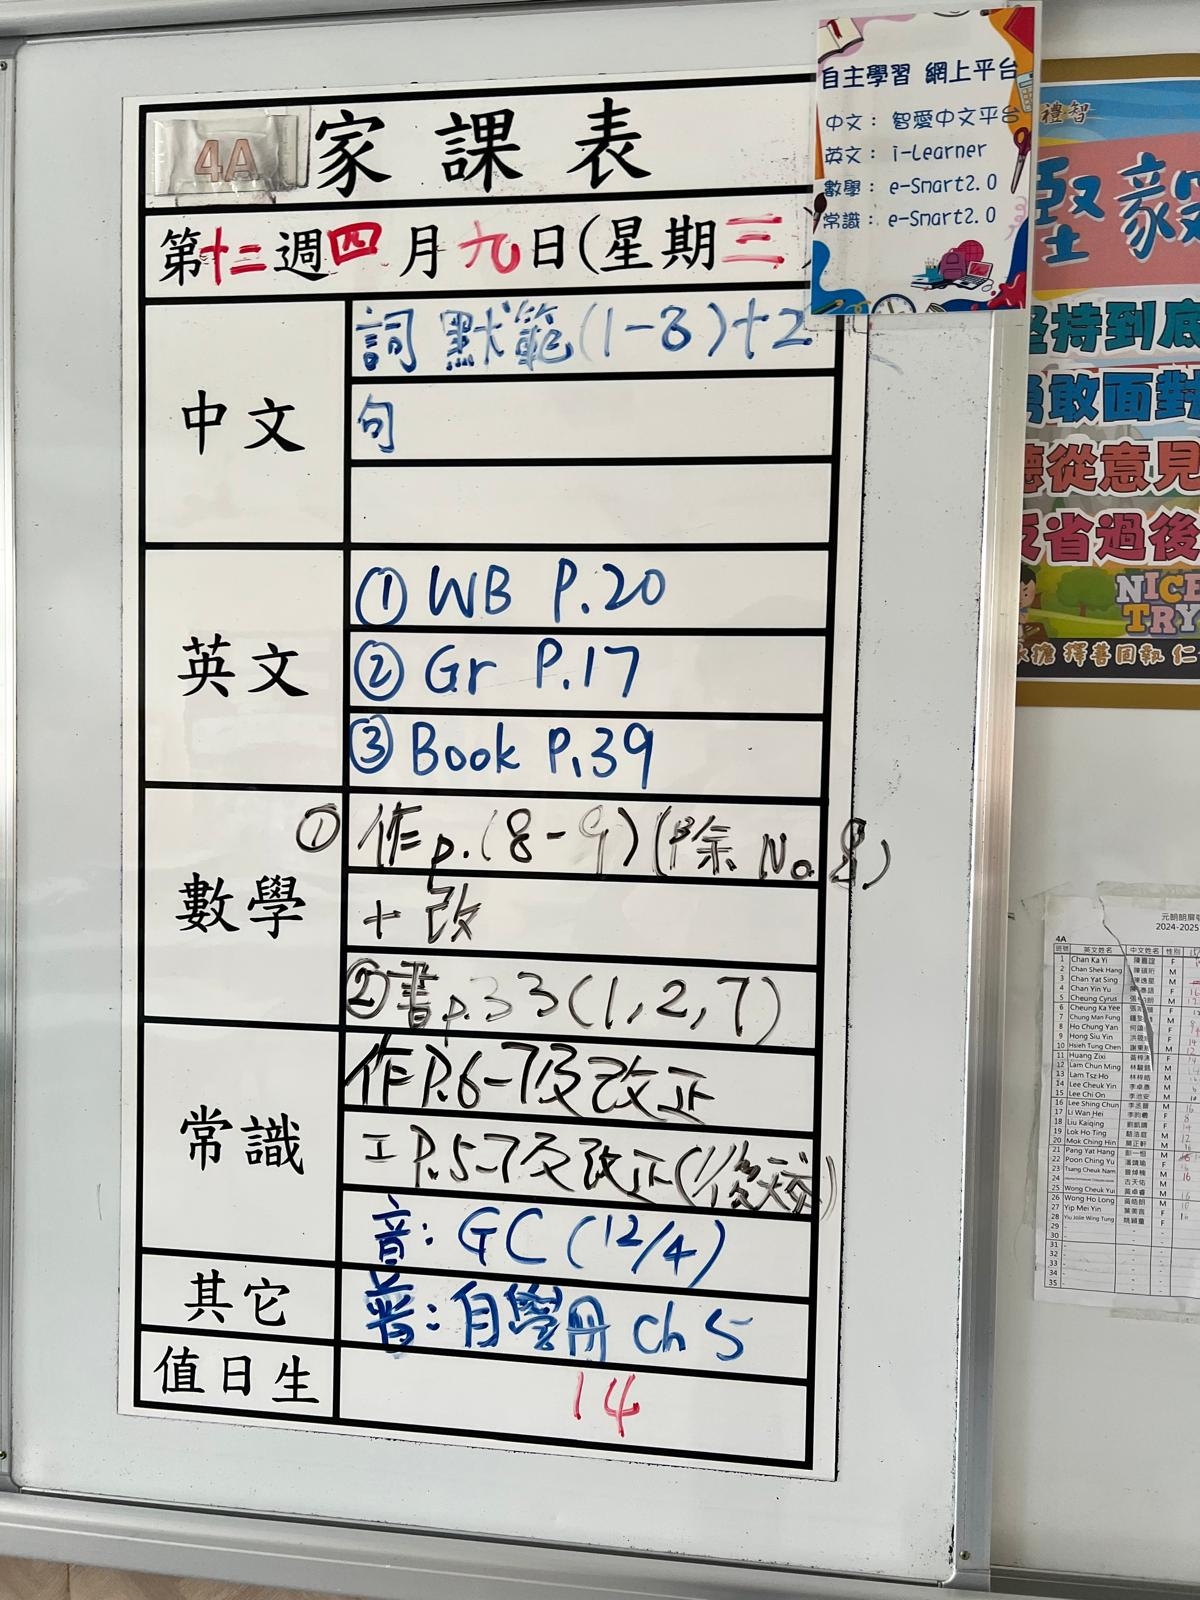 4A 家課表
第十二週四月九日(星期三
中文
詞 默範(1-8)+2
句
英文
① WB P.20
② Gr P.17
③ Book P.39
數學
① 作p.(8-9)(除 No.8)
+改
②書p.33(1,2,7)
常識
作P.6-7及改正
工P.5-7及改正(
音: GC (12/4)
其它
普: 自學冊 ch 5
值日生
14
自主學習 網上平台
中文: 智愛中文平台
英文: i-Learner
數學: e-Smart2.0
常識: e-Smart2.0
禮智
堅毅
堅持到底
勇敢面對
聽從意見
反省過後
NICE
TRY
擇善固執 仁
2024-2025
4A
班號 英文姓名 中文姓名 性別
1 Chan Ka Yi F
2 Chan Shek Hang M
3 Chan Yat Sing M
4 Chan Yin Yu F
5 Cheung Cyrus M
6 Cheung Ka Yee F
7 Chung Man Fung M
8 Ho Chung Yan F
9 Hong Siu Yin F
10 Hsieh Tung Chen M
11 Huang Zixi F
12 Lam Chun Ming M
13 Lam Tsz Ho M
14 Lee Cheuk Yin M
15 Lee Chi On M
16 Lee Shing Chun M
17 Li Wan Hei F
18 Liu Kaiqing F
19 Lok Ho Ting M
20 Mok Ching Hin M
21 Pang Yat Hang M
22 Poon Ching Yu F
23 Tsang Cheuk Nam M
24
25 Wong Cheuk Yui M
26 Wong Ho Long M
27 Yip Mei Yin F
28 Yiu Jolie Wing Tung F
29
30
31
32
33
34
35